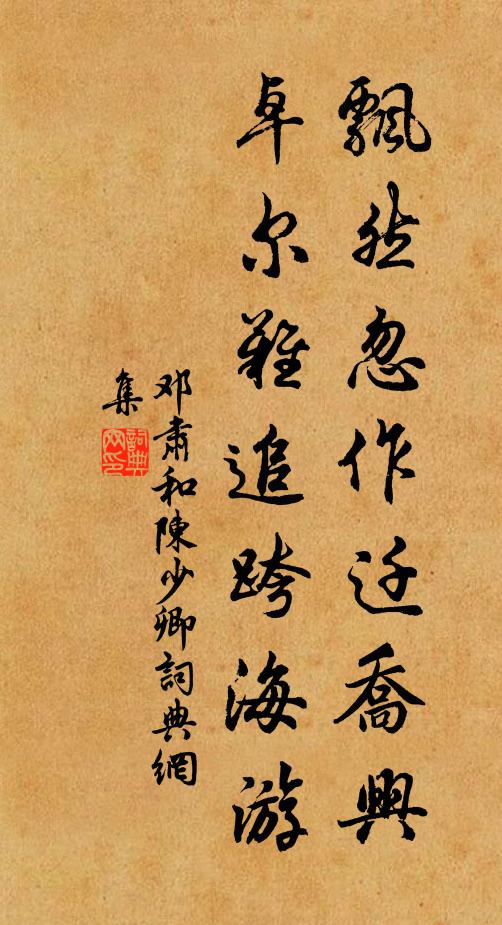 飄然忽作迁喬興
卓尔難追跨海游
邓肅和陳少卿詞典網
集
詞典
网印